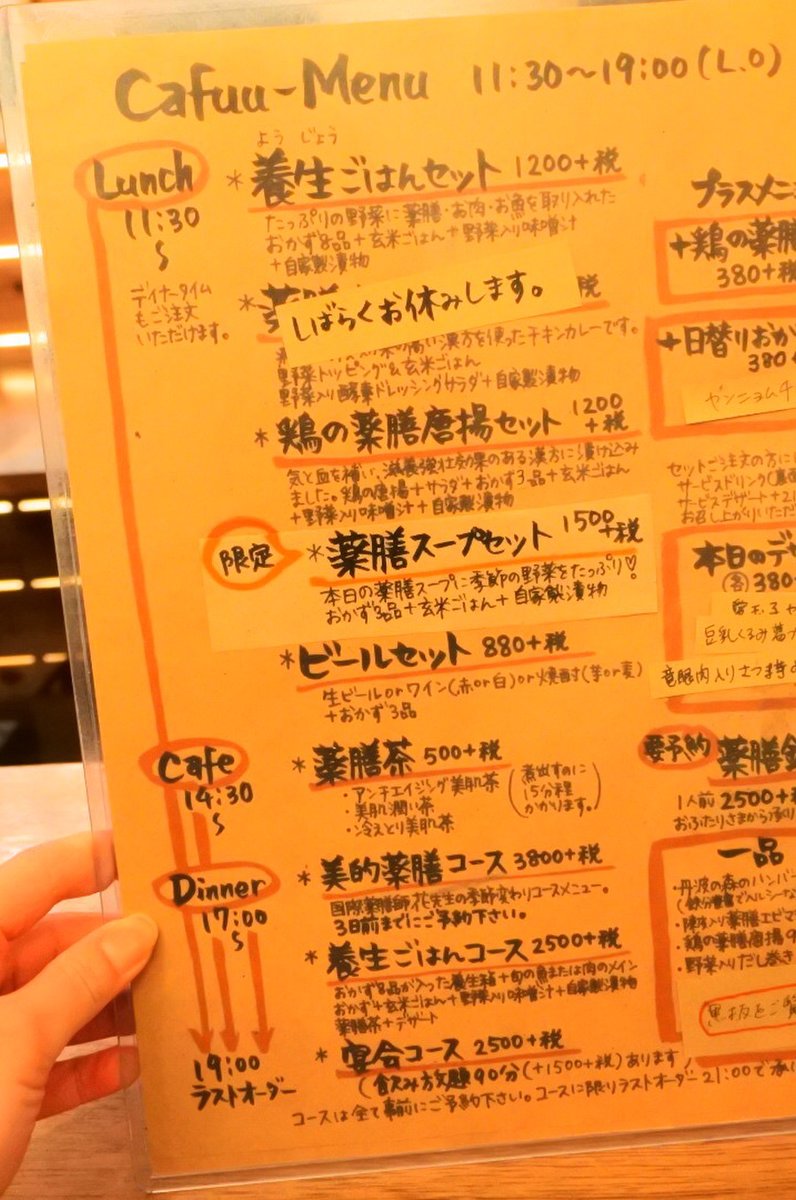 Cafuu-Menu 11:30~19:00(L.O)
Lunch
11:30
~
ディナータイム
もご注文
いただけます。
ようじょう
*養生ごはんセット 1200+税
たっぷりの野菜に薬膳・お肉・お魚を取り入れた
おかず8品+玄米ごはん+野菜入り味噌汁
+自家製漬物
しばらくお休みします。
税
漢方を使ったチキンカレーです。
野菜トッピング&玄米ごはん
野菜入り酵素ドレッシングサラダ+自家製漬物
*鶏の薬膳唐揚セット 1200+税
気と血を補い、滋養強壮効果のある漢方に漬け込み
ました。鶏の唐揚+サラダ+おかず3品+玄米ごはん
+野菜入り味噌汁+自家製漬物
限定
*薬膳スープセット 1500+税
本日の薬膳スープに季節の野菜をたっぷり♡
おかず3品+玄米ごはん+自家製漬物
*ビールセット 880+税
生ビールorワイン(赤or白)or焼酎(芋or麦)
+おかず3品
Cafe
14:30
~
*薬膳茶 500+税
・アンチエイジング美肌茶
・美肌潤い茶
・冷えとり美肌茶
(煮出すのに
15分程
かかります。)
Dinner
17:00
~
19:00
ラストオーダー
*美的薬膳コース 3800+税
国際薬膳師 花先生の季節変わりコースメニュー。
3日前までにご予約下さい。
*養生ごはんコース 2500+税
おかず8品が入った養生箱+旬の魚または肉のメイン
おかず+玄米ごはん+野菜入り味噌汁+自家製漬物
薬膳茶+デザート
*宴会コース 2500+税
(飲み放題90分(+1500+税)あります)
コースは全て事前にご予約下さい。コースに限りラストオーダー21:00で承
プラスメニ
+鶏の薬膳
380+税
+日替りおか
380
セットご注文の方に
サービスドリンク
サービスデザート+
お召し上がりいただ
本日のデ
(各)380
豆乳くるみ葛
竜眼肉入りさつま芋
要予約
薬膳
1人前 2500+
おふたりさまから承り
一品
・丹波の森のハンバー
(鉄分豊富でヘルシーな
・陳皮入り薬膳エビマ
・鶏の薬膳唐揚
・野菜入りだし巻き
黒板をご